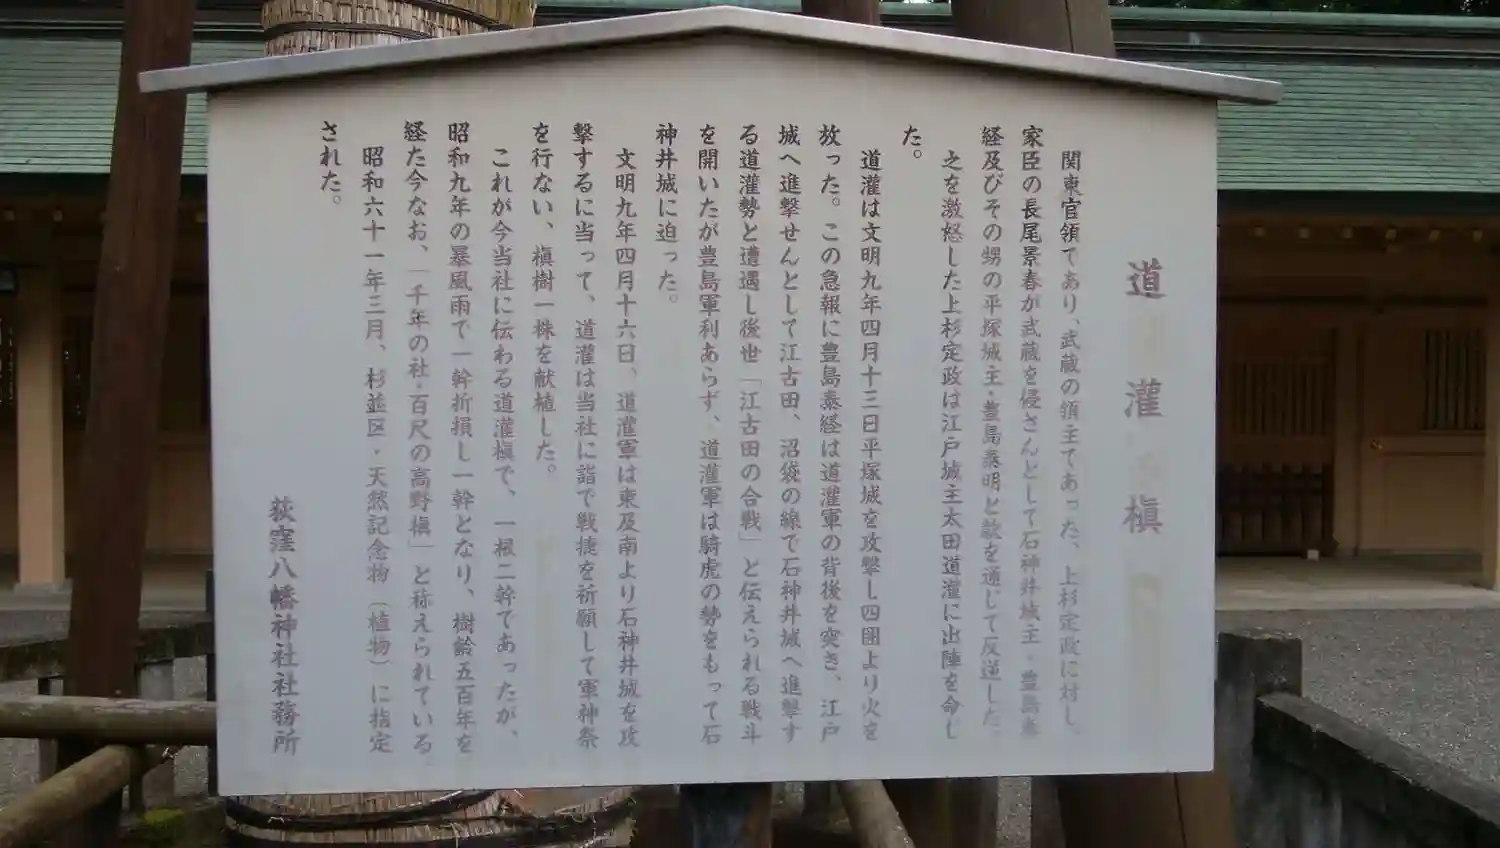 道灌槇
関東官領であり、武蔵の領主であった、上杉定政に対し、
家臣の長尾景春が武蔵を侵さんとして石神井城主・豊島泰
経及びその甥の平塚城主・豊島泰明と款を通じて反逆した。
之を激怒した上杉定政は江戸城主太田道灌に出陣を命し
た。
道灌は文明九年四月十三日平塚城を攻撃し四囲より火を
放った。この急報に豊島泰経は道灌軍の背後を突き、江戸
城へ進撃せんとして江古田、沼袋の線で石神井城へ進撃す
る道灌勢と遭遇し後世「江古田の合戦」と伝えられる戦斗
を開いたが豊島軍利あらず、道灌軍は騎虎の勢をもって石
神井城に迫った。
文明九年四月十六日、道灌軍は東及南より石神井城を攻
撃するに当って、道灌は当社に詣で戦捷を祈願して軍神祭
を行ない、槇樹一株を献植した。
これが今当社に伝わる道灌槇で、一根二幹であったが、
昭和九年の暴風雨で一幹折損し一幹となり、樹齢五百年を
経た今なお、「千年の社・百尺の高野槇」と称えられている。
昭和六十一年三月、杉並区・天然記念物（植物）に指定
された。
荻窪八幡神社社務所